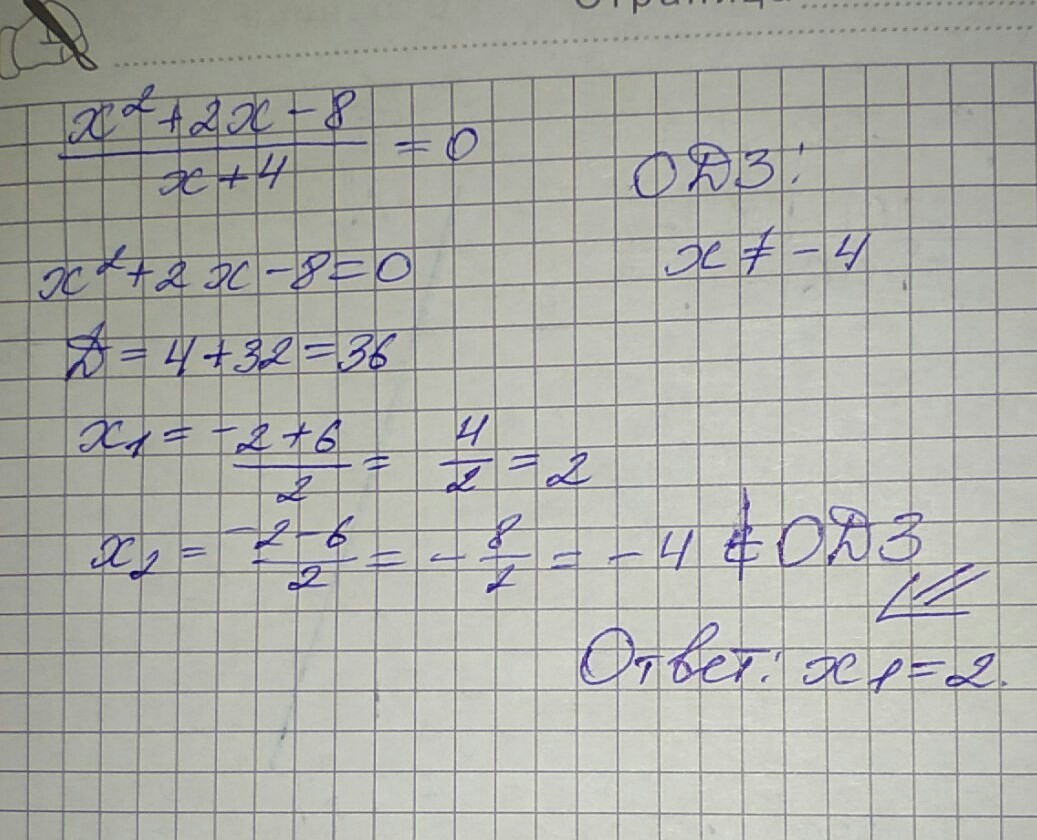 Страница
x² + 2x - 8
x + 4
= 0
ОДЗ:
x ≠ - 4
x² + 2x - 8 = 0
D = 4 + 32 = 36
x₁ = -2+6/2 = 4/2 = 2
x₂ = -2-6/2 = -8/2 = -4 ∉ ОДЗ
Ответ: x₁ = 2.